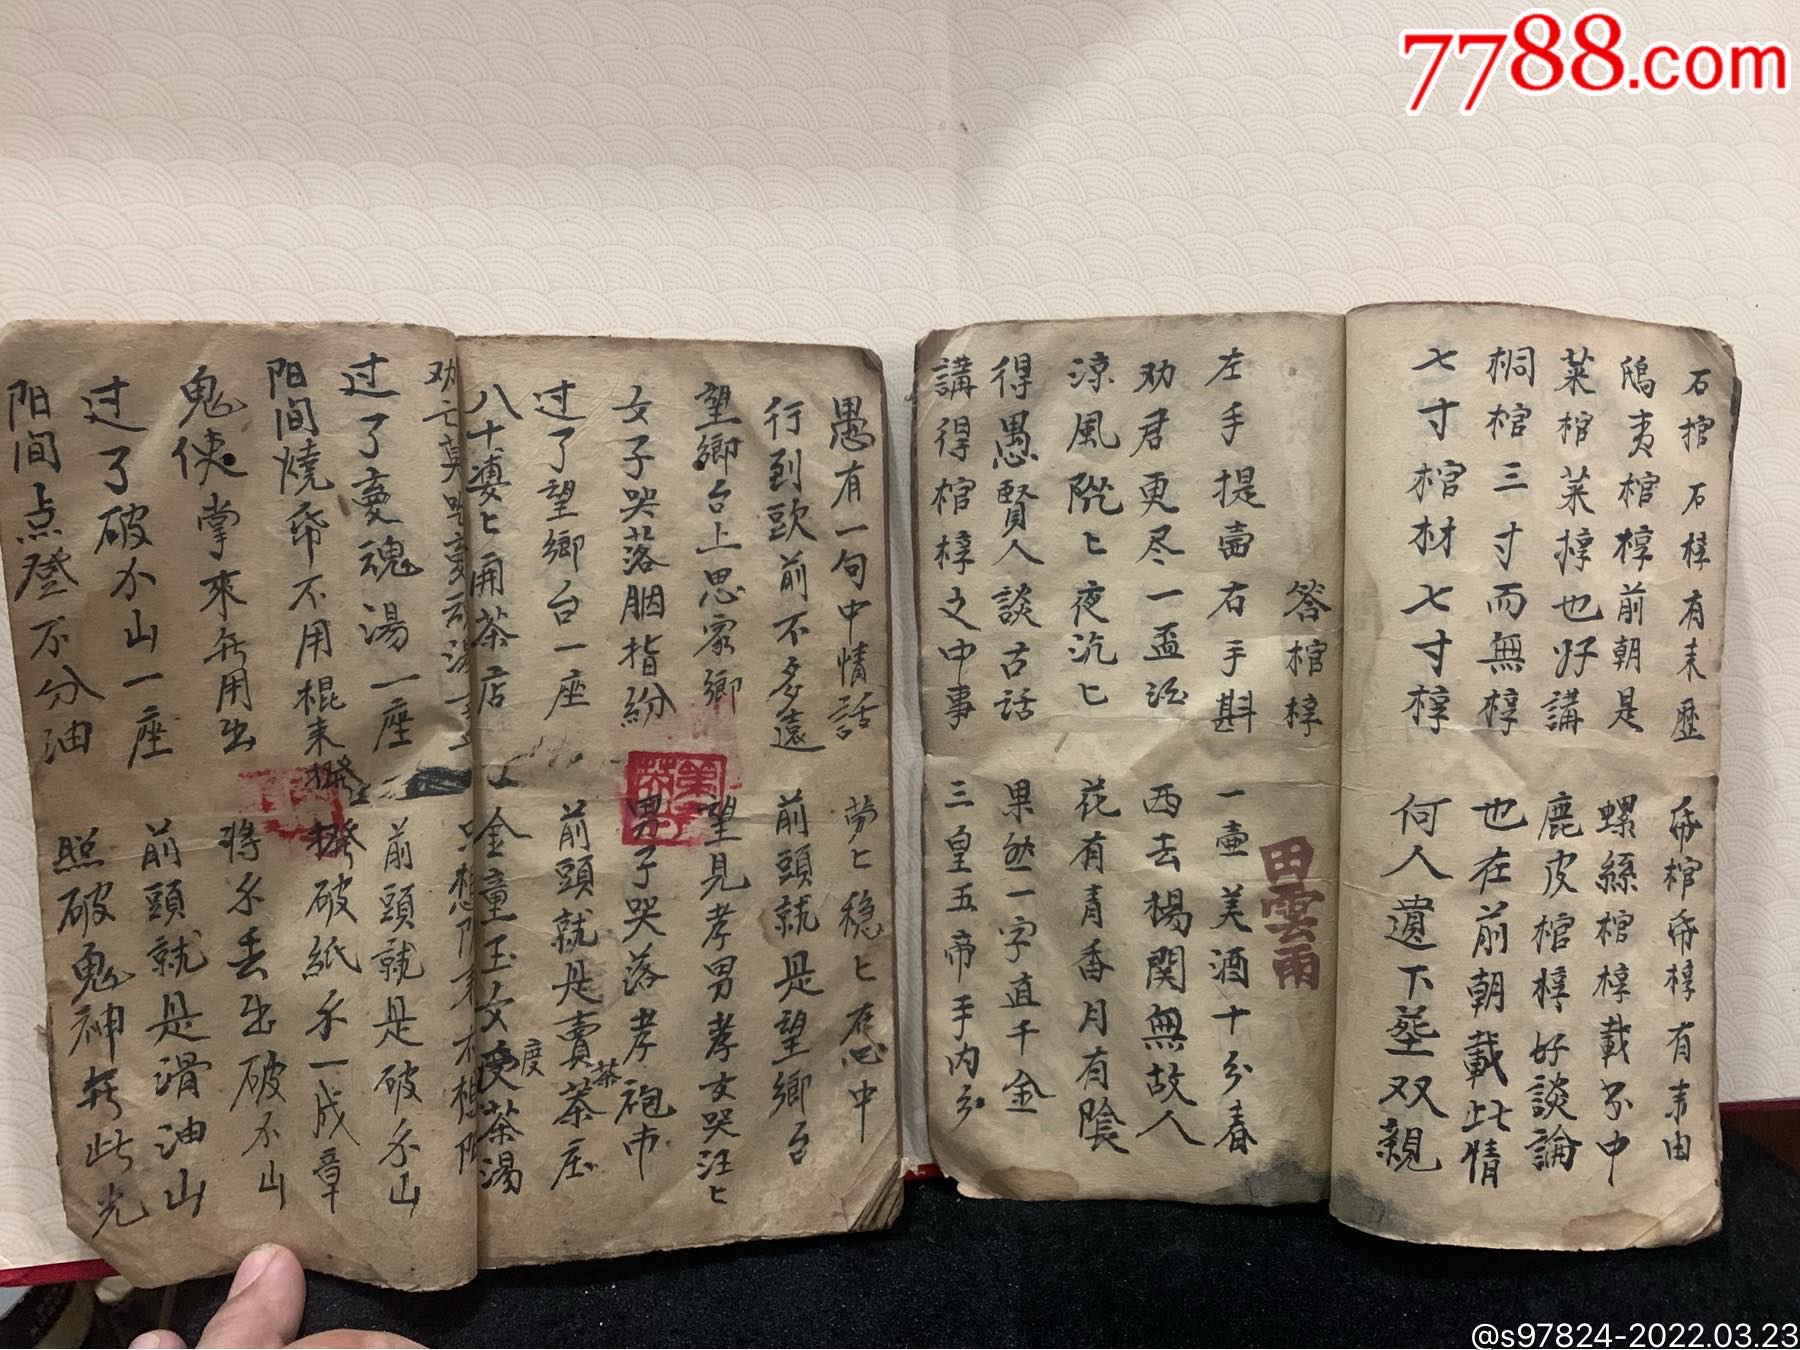 7788.com
石棺石槨有来歷 帋棺帋槨有来由
鴟夷棺槨前朝是 螺絲棺槨載不中
菜棺菜槨也好講 鹿皮棺槨好談論
桐棺三寸而無槨 也在前朝載此情
七寸棺材七寸槨 何人遺下塟双親
答棺槨
田雲雨
左手提壺右手斟 一壺美酒十分春
劝君更尽一盃酒 西去楊関無故人
涼風院匕夜沉匕 花有青香月有陰
得愚賢人談古話 果然一字直千金
講得棺槨文中事 三皇五帝手内分
愚有一句中情話 劳匕稳匕在心中
行到欤前不多遠 前頭就是望鄉台
望鄉台上思家鄉 望見孝男孝女哭汪匕
女子哭落胭指紛 男子哭落孝袍巾
过了望鄉台一座 前頭就是賣茶庄
茶
八十婆匕開茶店 金童玉女度茶湯
过了变魂湯一座 前頭就是破不山
阳间燒帋不用棍来撥 撥破紙錢不成章
鬼使掌來無用出 將手丢出破不山
过了破不山一座 前頭就是滑油山
阳间点燈不分油 照破鬼神無此光
@s97824-2022.03.23